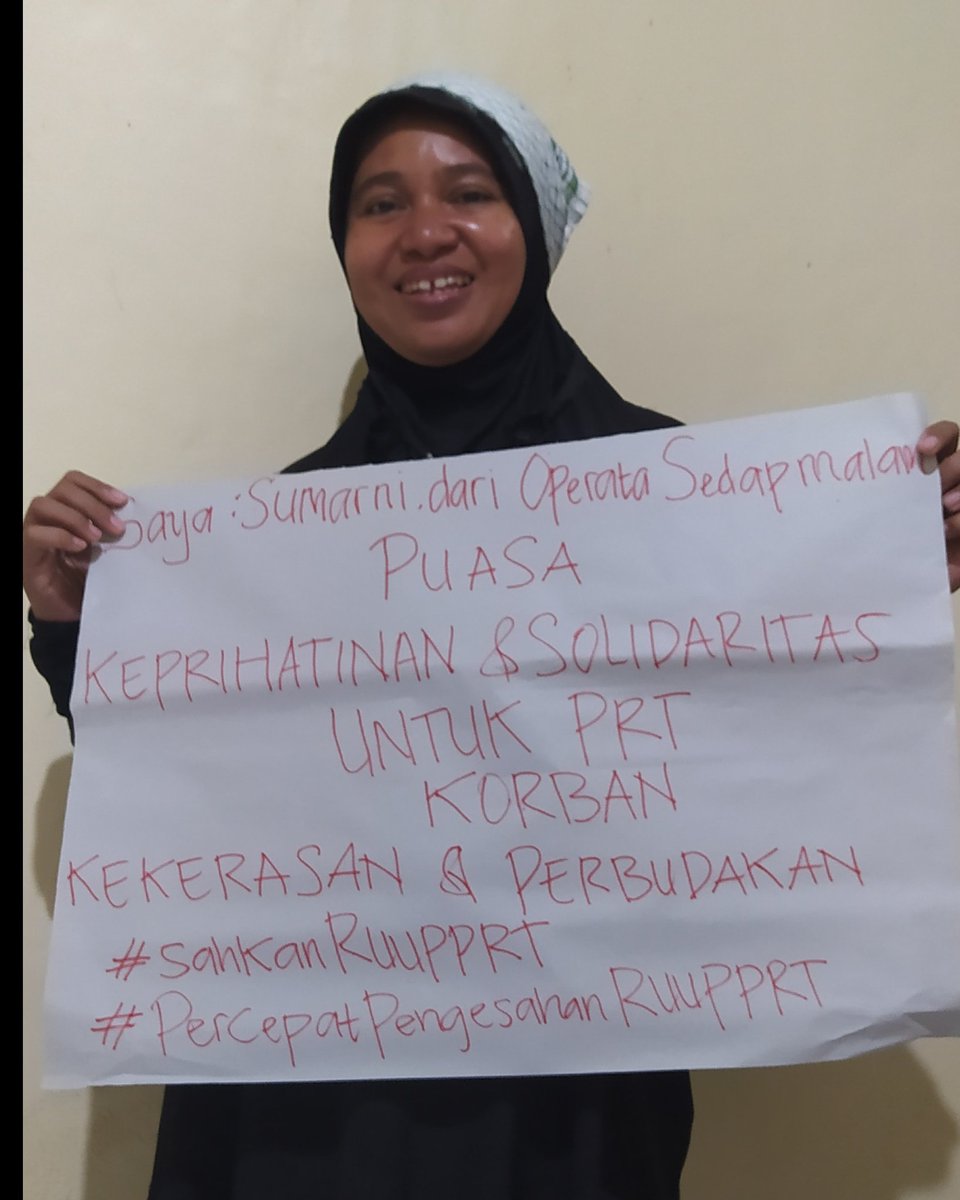 Saya : Sumarni. dari Operata Sedapmalam
PUASA
KEPRIHATINAN & SOLIDARITAS
UNTUK PRT
KORBAN
KEKERASAN & PERBUDAKAN
#sahkanRUUPPRT
#PercepatPengesahanRUUPPRT